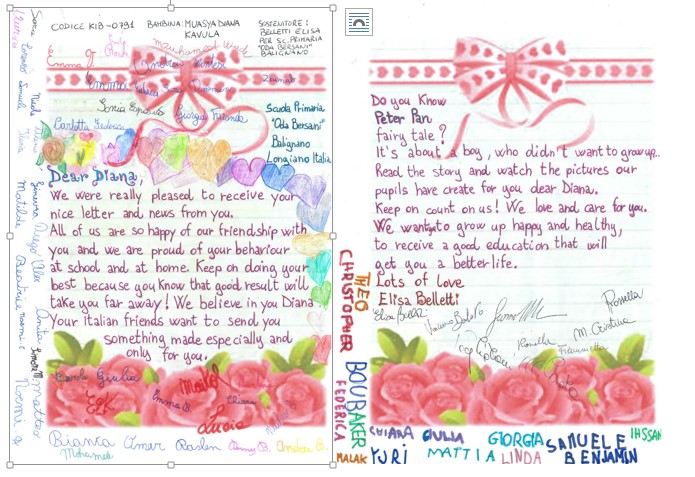 CODICE KIB-0791
BAMBINA: MUASYA DIANA
KAVULA
SOSTENITORE:
BELLETTI ELISA
PER SC. PRIMARIA
"ODA BERSANI"
BALIGNANO
Emma
Sonia Esposito
Giorgia
Carlotta Federica
Scuola Primaria
"Oda Bersani"
Balignano
Longiano Italia
Lorenzo
Samuele
Matilde
Ginevra
Diego
Alex
Beatrice
Anita
Matteo
Noemi
Dear Diana,
We were really pleased to receive your
nice letter and news from you.
All of us are so happy of our friendship with
you and we are proud of your behaviour
at school and at home. Keep on doing your
best because you know that good result will
take you far away! We believe in you Diana.
Your Italian friends want to send you
something made especially and
only for you.
Giulia
Emma B.
Chiara
Lucia
Bianca
Omar
Mohamed
Do you know
Peter Pan
fairy tale?
It's about a boy, who didn't want to grow up..
Read the story and watch the pictures our
pupils have create for you dear Diana.
Keep on count on us! We love and care for you.
We want to grow up happy and healthy,
to receive a good education that will
get you a better life.
Lots of love
Elisa Belletti
Ornella
M. Cristina
Fiammetta
THEO
CHRISTOPHER
BOUBAKER
FEDERICA
MALAK
CHIARA
GIULIA
GIORGIA
SAMUELE
IHSSAN
YURI
MATTIA
LINDA
BENJAMIN